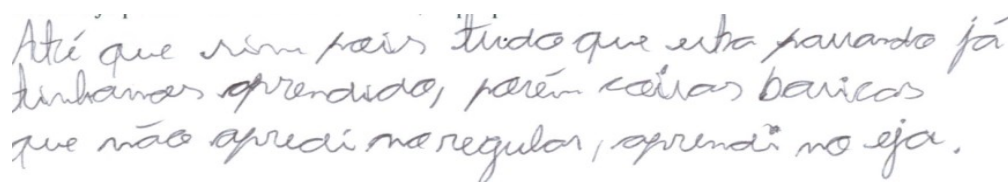 Até que sim pois tudo que esta passando já
tinhamos aprendido, porém coisas basicas
que não apredi no regular, aprendi no eja.